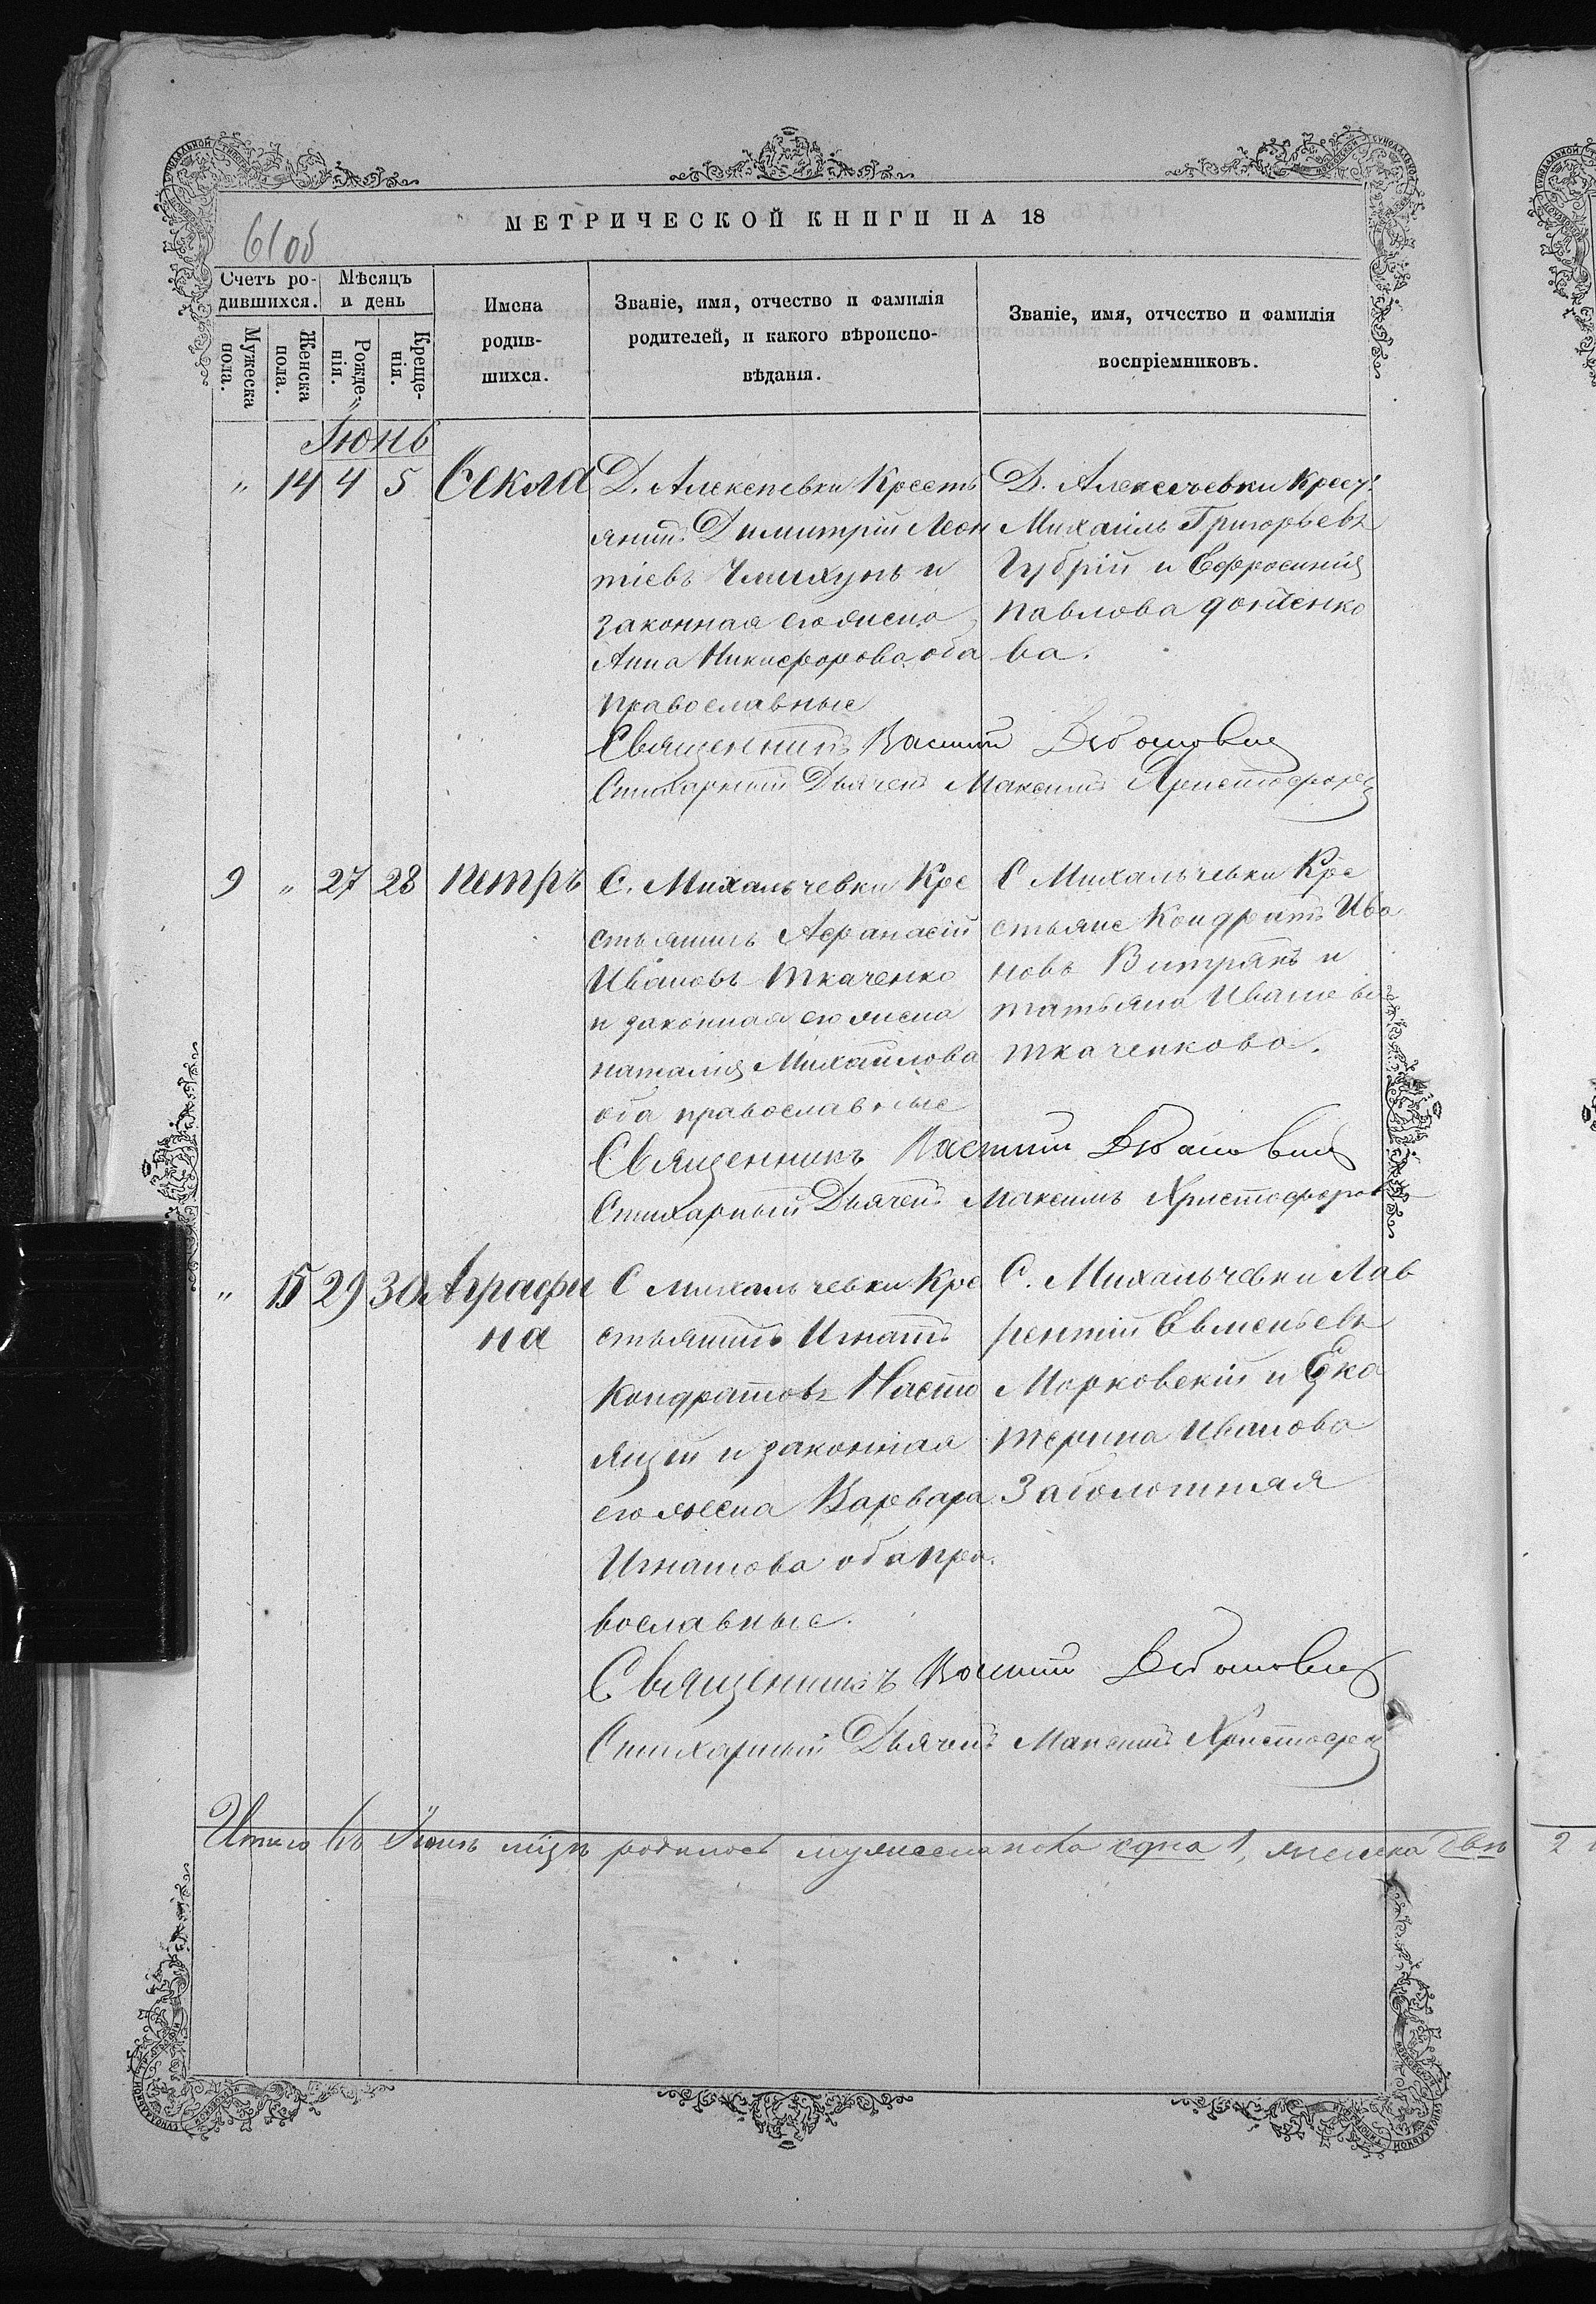 МЕТРИЧЕСКОЙ КНИГИ НА 18
Счетъ ро-
дившихся.
Мѣсяцъ
и день
Мужеска
пола.
Женска
пола.
Рожде-
нія.
Креще-
нія.
Имена
родив-
шихся.
Званіе, имя, отчество и фамилія
родителей, и какого вѣроиспо-
вѣданія.
Званіе, имя, отчество и фамилія
воспріемниковъ.
Іюнь
" 14 4 5 Ѳекла
Д. Алексѣевки Кресть
янинъ Димитрій Леон
тіевъ и
законная его жена
Анна Никифорова, оба
православные
Д. Алексѣевки Крест:
Михаилъ Григорьевъ
Губрій и Ефросинія
Павлова
ва.
Священникъ Василий
Стихарный Дьячекъ Максимъ Христофоров
9 " 27 28 Петръ
С. Михальчевки Кре
стьянинъ Афанасій
Ивановъ Ткаченко
и законная его жена
Наталія Михайлова
оба православные
С Михальчевки Кре
стьяне Кондратъ Ива
новъ Витрякъ и
Татьяна Иванова
Ткаченкова.
Священникъ Василий
Стихарный Дьячекъ Максимъ Христофоров
" 15 29 30 Аграфи
на
С Михальчевки Кре
стьянинъ Игнатъ
Кондратовъ Насто
ящей и законная
его жена Варвара
Игнатова оба пра
вославные.
С. Михальчевки Лав
рентій Евменьевъ
Морковскій и Ека
терина Иванова
Заболотная
Священникъ Василий
Стихарный Дьячекъ Максимъ Христофоров
Итого въ Іюнѣ мцѣ родилось мужеска пола одна 1, женска двѣ 2